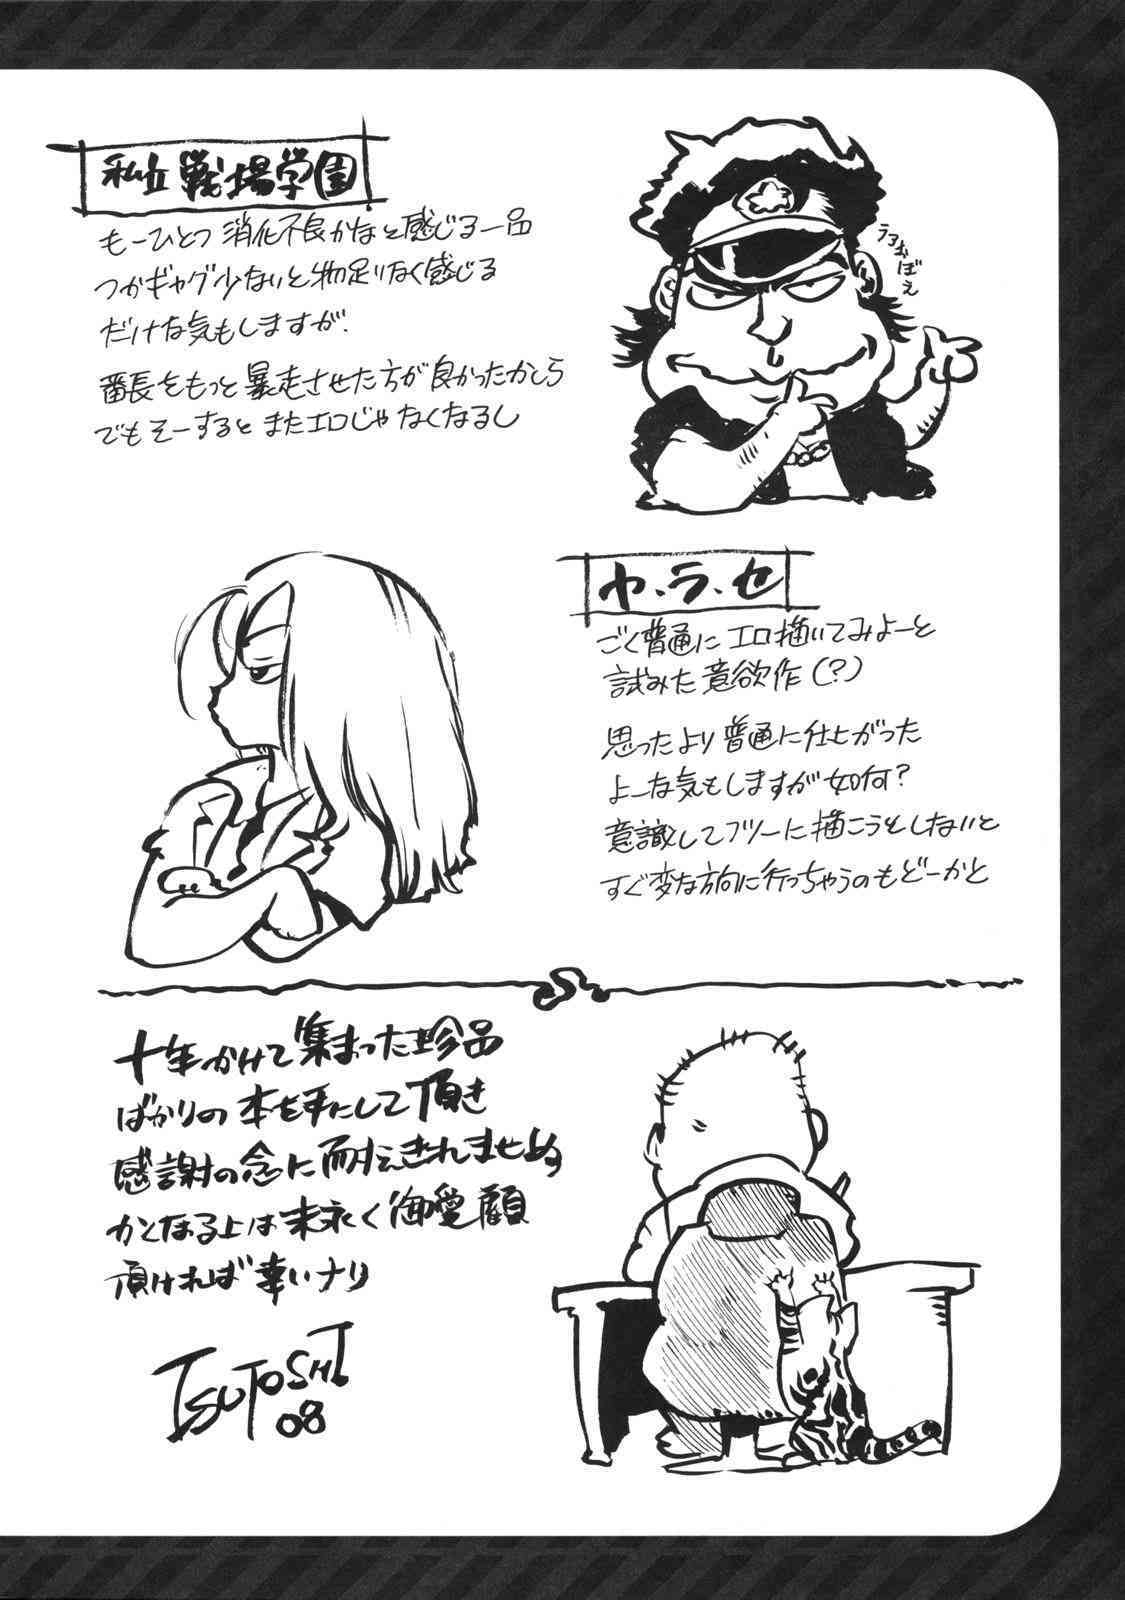 私立戦場学園
もーひとつ消化不良かなと感じる一品
つかギャグ少ないと物足りなく感じる
だけな気もしますが.
番長をもっと暴走させた方が良かったかしら
でもそーするとまたエロじゃなくなるし
ラヲおぼえ
ヤ.ラ.セ
ごく普通にエロ描いてみよーと
試みた意欲作(?)
思ったより普通に仕上がった
よーな気もしますが如何?
意識してフツーに描こうとしないと
すぐ変な方向に行っちゃうのもどーかと
十年かけて集まった珍品
ばかりの本を手にして頂き
感謝の念に耐えきれませぬ
かくなる上は末永く御愛顧
頂ければ幸いナリ
TSUTOSHI
08